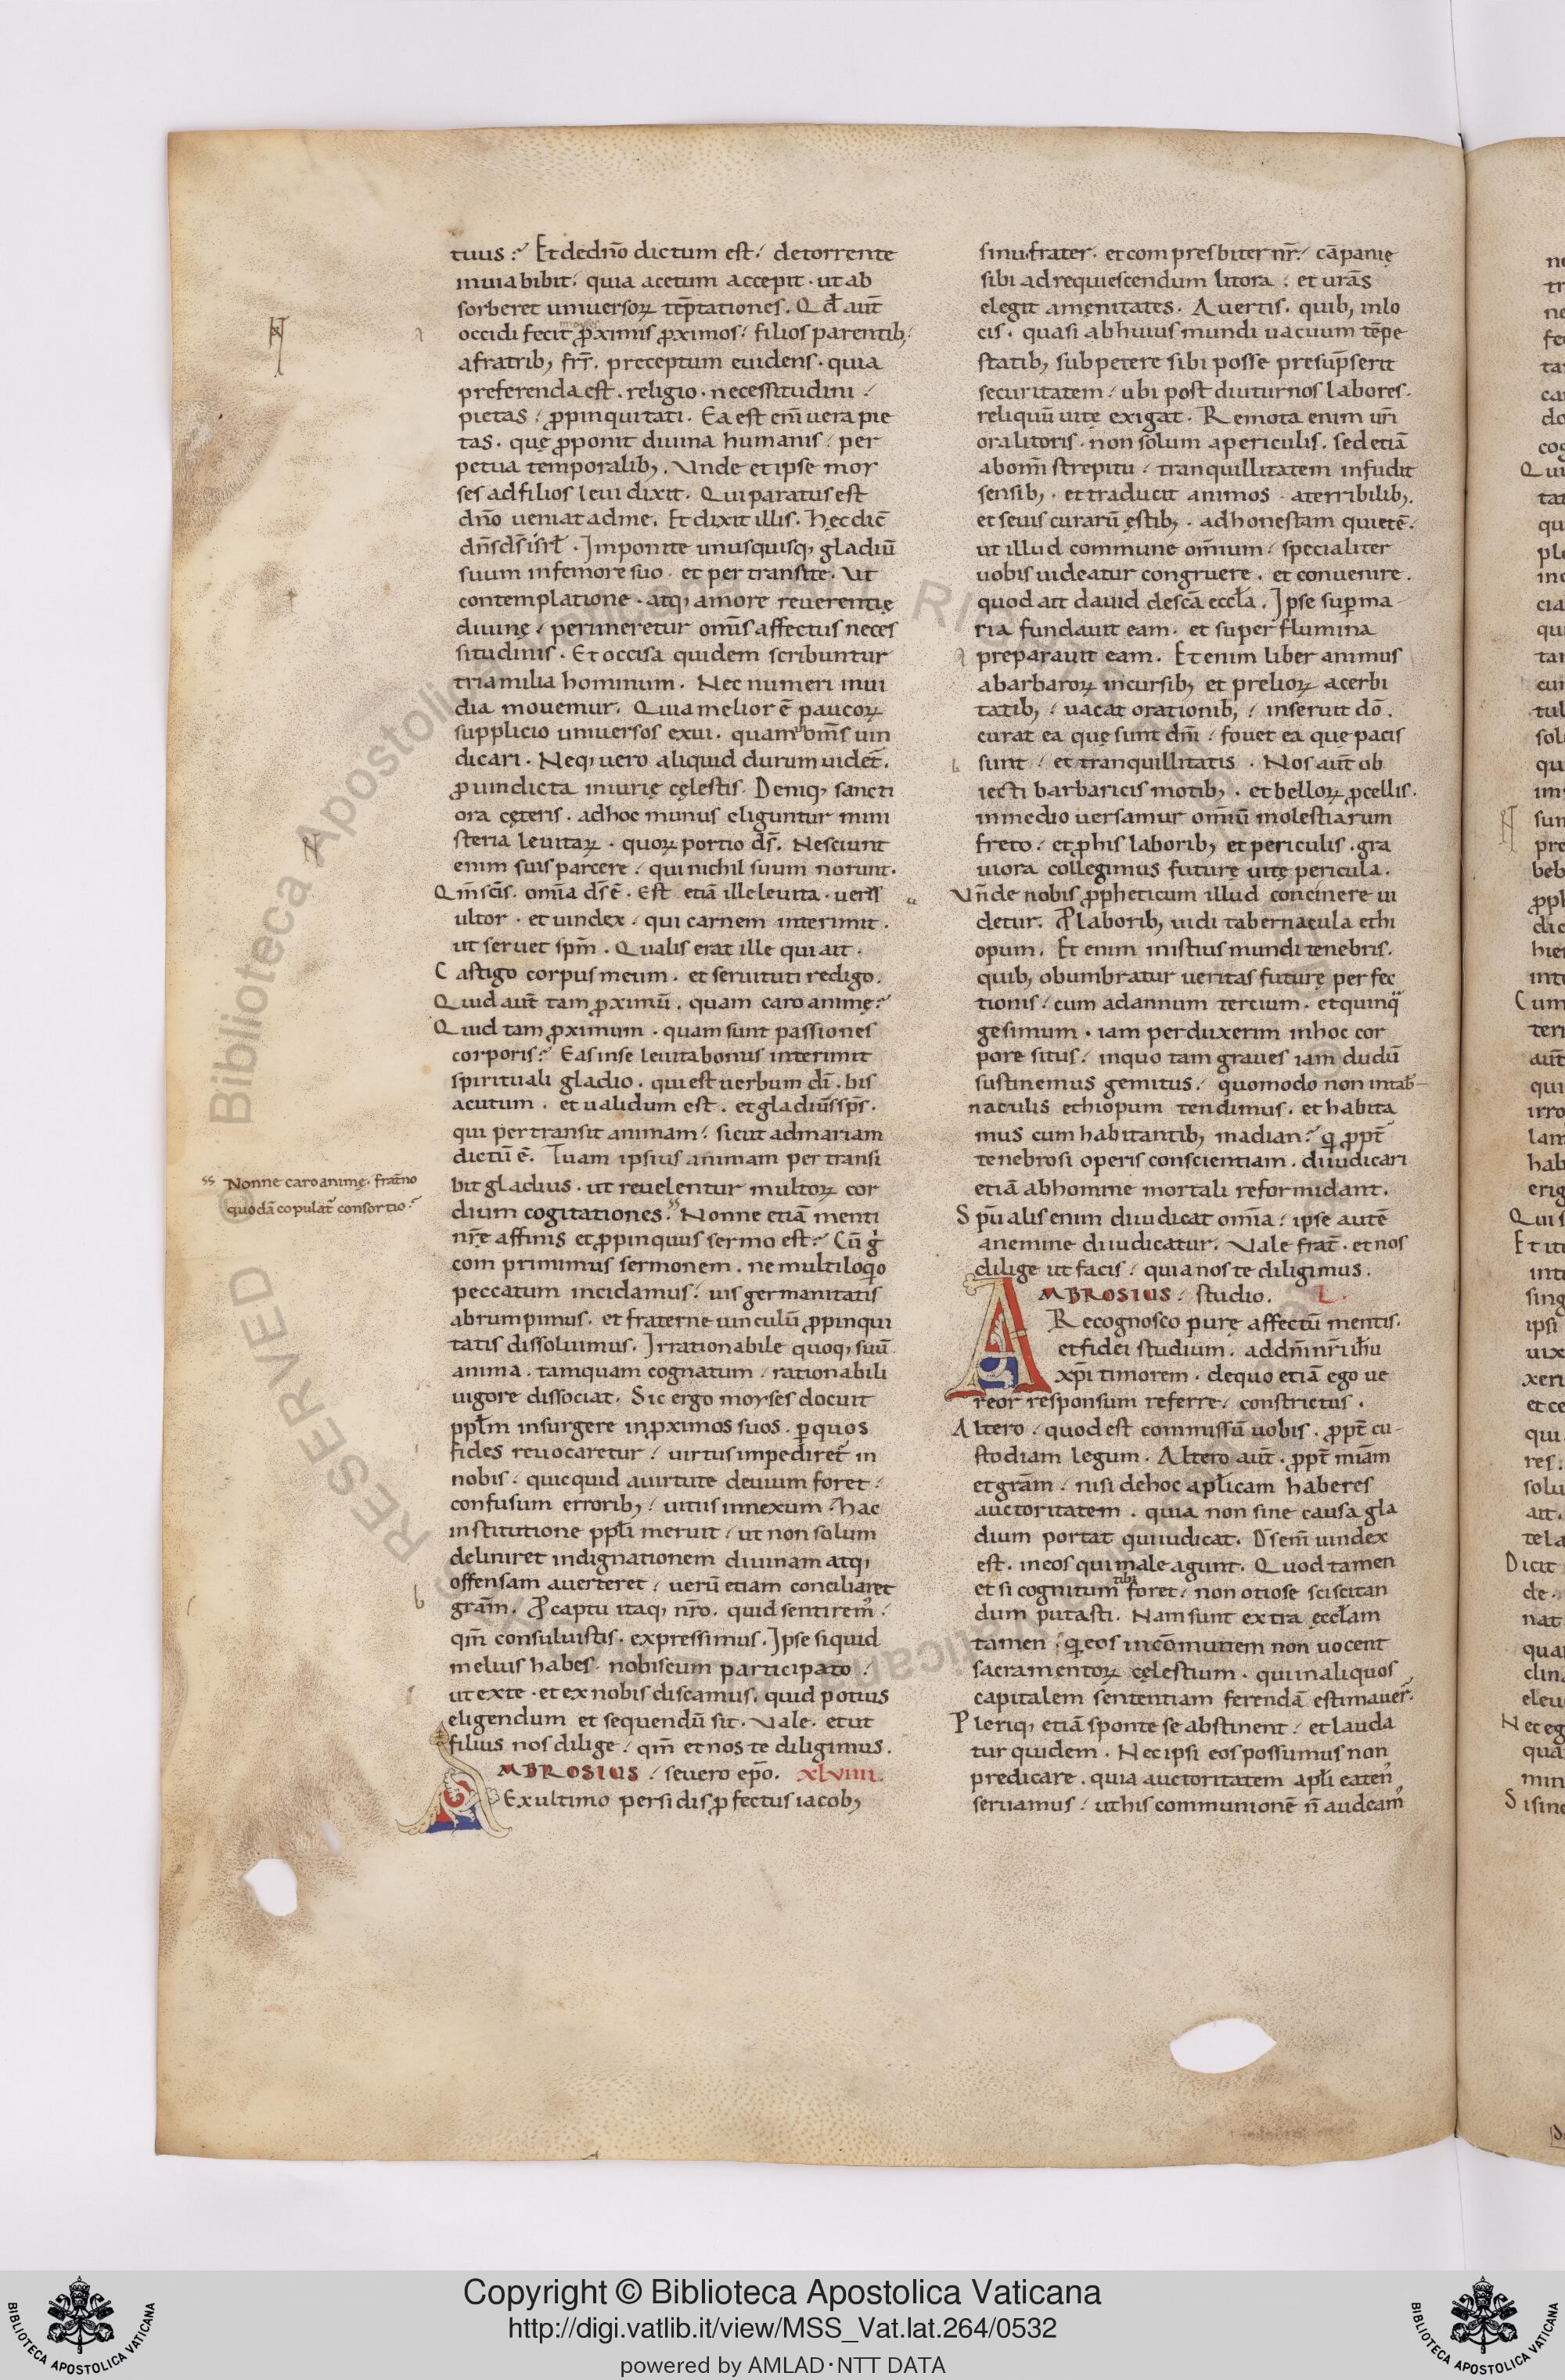 tuus? Et de dn̄o dictum est. de torrente
in uia bibit. quia acetum accepit. ut ab
sorberet uniuersoꝝ tēptationes. Qđ aut̄
occidi fecit ꝓximis ꝓximos. filios parentib;
a fratrib; fr̄s. preceptum euidens. quia
preferenda est. religio. necessitudini.
pietas. ꝓpinquitati. Ea est eni̅ uera pie
tas. quę ꝓponit diuina humanis. per
petua temporalib;. Vnde et ipse moy
ses ad filios leui dixit. Qui paratus est
dn̄o ueniat ad me. Et dixit illis. Hęc dic̄
dn̄s ds̄ isrł. Imponite unusquisq; gladiū
suum in femore suo. et per transite. Vt
contemplatione. atq; amore reuerentię
diuinę. perimeretur om̄is affectus neces
situdinis. Et occisa quidem scribuntur
tria milia hominum. Nec numeri inui
dia mouemur. Quia melior ē paucoꝝ
supplicio uniuersos exui. quam om̄s uin
dicari. Neq; uero aliquid durum uidet̄.
ꝓ uindicta iniurię cęlestis. Deniq; sancti
ora cęteris. ad hoc munus eliguntur mini
steria leuitaꝝ. quoꝝ portio ds̄. Nesciunt
enim suis parcere. qui nichil suum norunt.
Qm̄ scīs. omīa ds̄ ē. Est etiā ille leuita. uerꝰ
ultor. et uindex. qui carnem interimit.
ut seruet spm̄. Qualis erat ille qui ait.
Castigo corpus meum. et seruituti redigo.
Quid aut̄ tam ꝓximū. quam caro animę?
Quid tam ꝓximum. quam sunt passiones
corporis? Eas in se leuita bonus interimit
spirituali gladio. qui est uerbum dī. bis
acutum. et ualidum est. et gladiūs sps̄.
qui pertransit animam. sicut ad mariam
dictū ē. Tuam ipsius animam per transi
bit gladius. ut reuelentur multoꝝ cor
dium cogitationes. Nonne etiā menti
nr̄ę affinis et ꝓpinquus sermo est? Cū g̊
com primimus sermonem. ne multiloq̊o
peccatum incidamus. uis germanitatis
abrumpimus. et fraterne uinculū ꝓpinqui
tatis dissoluimus. Irrationabile quoq; suū
anima. tamquam cognatum. rationabili
uigore dissociat. Sic ergo moyses docuit
ppłm insurgere in ꝓximos suos. ꝑ quos
fides reuocaretur. uirtus impediret̄ in
nobis. quicquid a uirtute deuium foret.
confusum errorib;. uitiis innexum. hac
institutione ppłi meruit. ut non solum
deliniret indignationem diuinam atq;
offensam auerteret. uerū etiam conciliaret
grām. Ꝓ captu itaq; nr̄o. quid sentirem᷒.
qm̄ consuluistis. expressimus. Ipse si quid
melius habes. nobiscum participato.
ut ex te. et ex nobis discamus. quid potius
eligendum et sequendū sit. Vale. et ut
filius nos dilige. qm̄ et nos te diligimus.
AMBROSIUS. seuero epō. XLVIIII.
Ex ultimo persidis ꝓfectus iacob;
Nonne caro animę. frat̄no
quodā copulat̄ consortio?
sinu. frater. et compresbiter nr̄. cāpanię
sibi ad requiescendum litora. et urās
elegit amęnitates. Auertis. quib; in lo
cis. quasi ab huius mundi uacuum tēpe
statib; subpetere sibi posse presūpserit
securitatem. ubi post diuturnos labores.
reliquū uitę exigat. Remota enim ur̄i
ora litoris. non solum a periculis. sed etiā
ab om̄i strepitu. tranquillitatem infudit
sensib;. et traducit animos. a terribilib;.
et seuis curarū ęstib;. ad honestam quietē.
ut illud commune om̄nium. specialiter
uobis uideatur congruere. et conuenire.
quod ait dauid de scā eccła. Ipse sup̱ ma
ria fundauit eam. et super flumina
preparauit eam. Etenim liber animus
a barbaroꝝ incursib; et prelioꝝ acerbi
tatib;. uacat orationib;. inseruit dō.
curat ea quę sunt dn̄i. fouet ea quę pacis
sunt. et tranquillitatis. Nos aut̄ ob
iecti barbaricis motib;. et belloꝝ ꝓcellis.
in medio uersamur omniū molestiarum
freto. et ꝓ his laborib; et periculis. gra
uiora collegimus futurę uitę pericula.
Vn̄de nobis ꝓpheticum illud concinere ui
detur. Ꝓ laborib; uidi tabernacula ethi
opum. Etenim in istius mundi tenebris.
quib; obumbratur ueritas futurę perfec
tionis. cum ad annum tercium. et quinq̈
gesimum. iam perduxerim in hoc cor
pore situs. in quo tam graues iam dudū
sustinemus gemitus. quomodo non in tab̄
naculis ethiopum tendimus. et habita
mus cum habitantib; madian? q̱ ꝓpt̄
tenebrosi operis conscientiam. diiudicari
etiā ab homine mortali reformidant.
Spū alis enim diiudicat omīa. ipse autē
a nemine diiudicatur. Vale frat̄. et nos
dilige ut facis. quia nos te diligimus.
AMBROSIUS. studio. L.
Recognosco purę affectū mentis.
et fidei studium. ad dn̄m nr̄i ihū
xp̄i timorem. de quo etiā ego ue
reor responsum referre. constrictus.
Altero. quod est commissū uobis. ꝓpt̄ cu
stodiam legum. Altero aut̄. ꝓpt̄ miām
et grām. nisi de hoc apłicam haberes
auctoritatem. quia non sine causa gla
dium portat qui iudicat. Ds eni̅ uindex
est. in eos qui male agunt. Quod tamen
et si cognitum tibi foret. non otiose sciscitan
dum putasti. Nam sunt extra ęccłam
tamen. q̱ eos in cōmunem non uocent
sacramentoꝝ cęlestium. qui in aliquos
capitalem sententiam ferendā estimauer̄.
Pleriq; etiā sponte se abstinent. et lauda
tur quidem. Nec ipsi eos possumus non
predicare. quia auctoritatem apłi eaten᷒
seruamus. ut his communionē n̄ audeam᷒
Copyright © Biblioteca Apostolica Vaticana
http://digi.vatlib.it/view/MSS_Vat.lat.264/0532
powered by AMLAD·NTT DATA
BIBLIOTECA APOSTOLICA VATICANA
BIBLIOTECA APOSTOLICA VATICANA